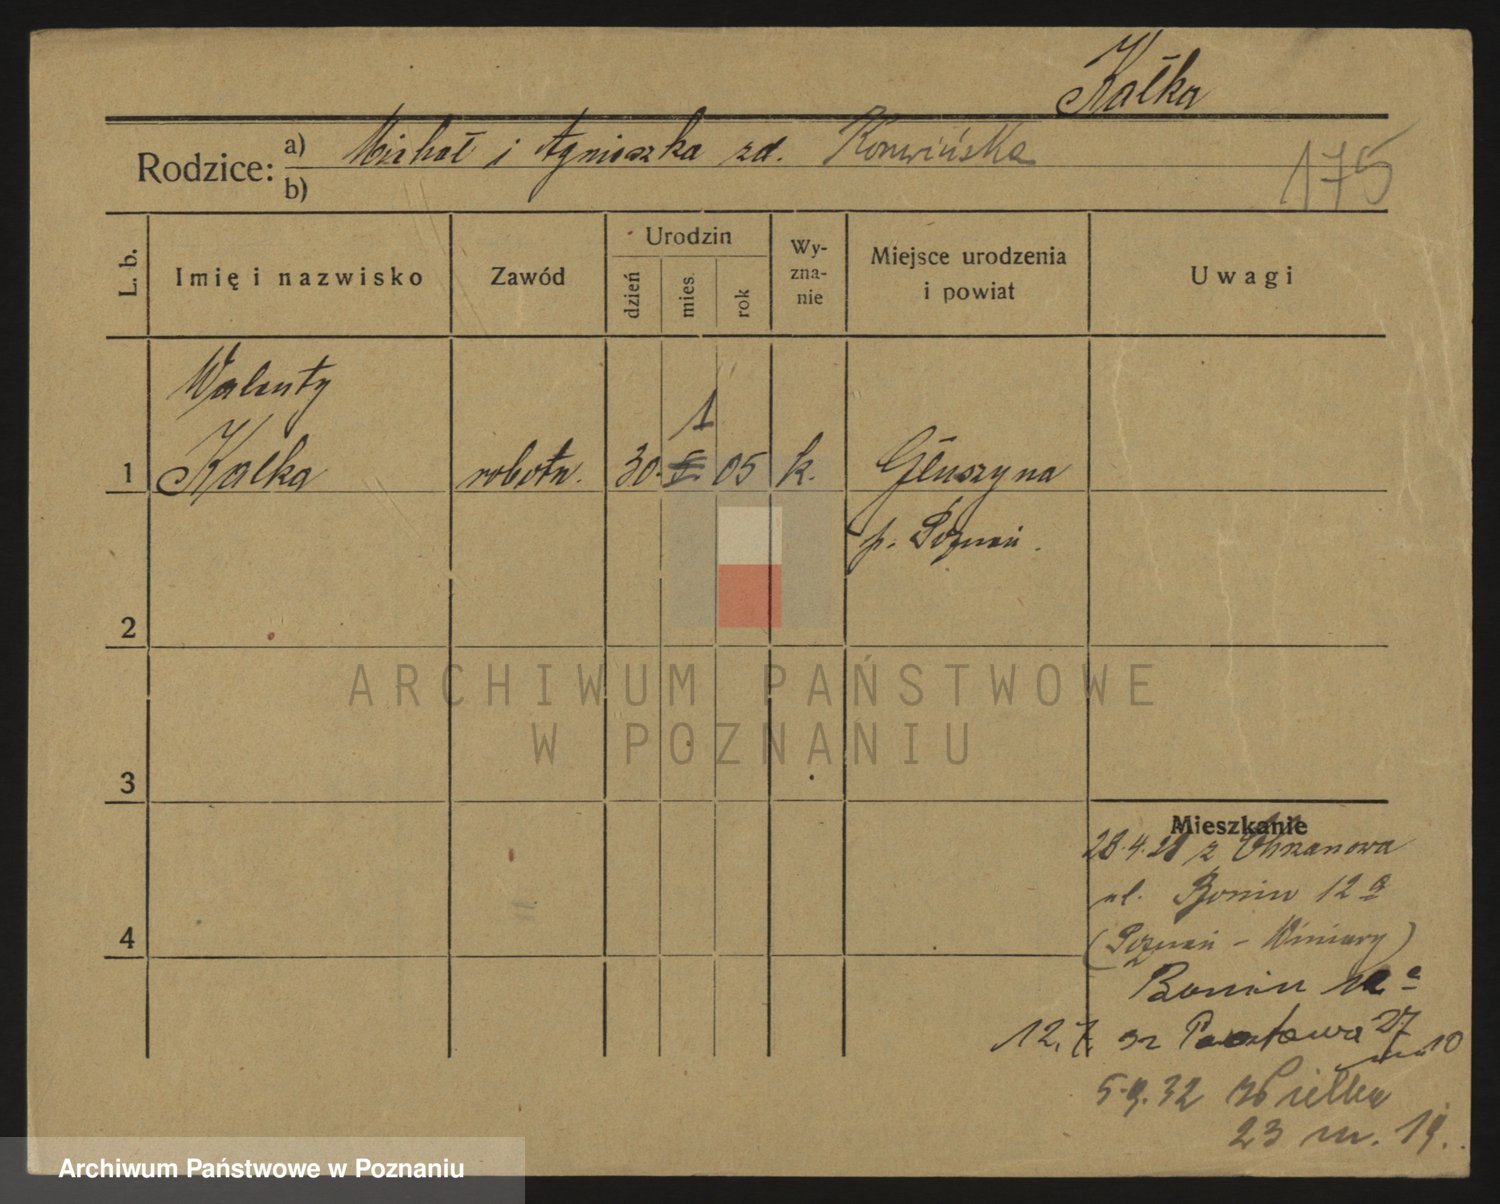 Kałka
Rodzice: a) Michał i Agnieszka zd. Konwińska
b)
175
L. b. Imię i nazwisko Zawód Urodzin dzień mies. rok Wy-zna-nie Miejsce urodzenia i powiat Uwagi
Walenty
1
1 Kałka robotn. 30. 05 k. Głuszyna
p. Poznań.
2
3
4
Mieszkanie
28.4.28 z Chrzanowa
ul. Bonin 12 a
(Poznań - Winiary)
Bonin 12 a
12. 7. 32 27
m 10
5.9.32 Wielka
23 m. 19.
ARCHIWUM PAŃSTWOWE
W POZNANIU
Archiwum Państwowe w Poznaniu